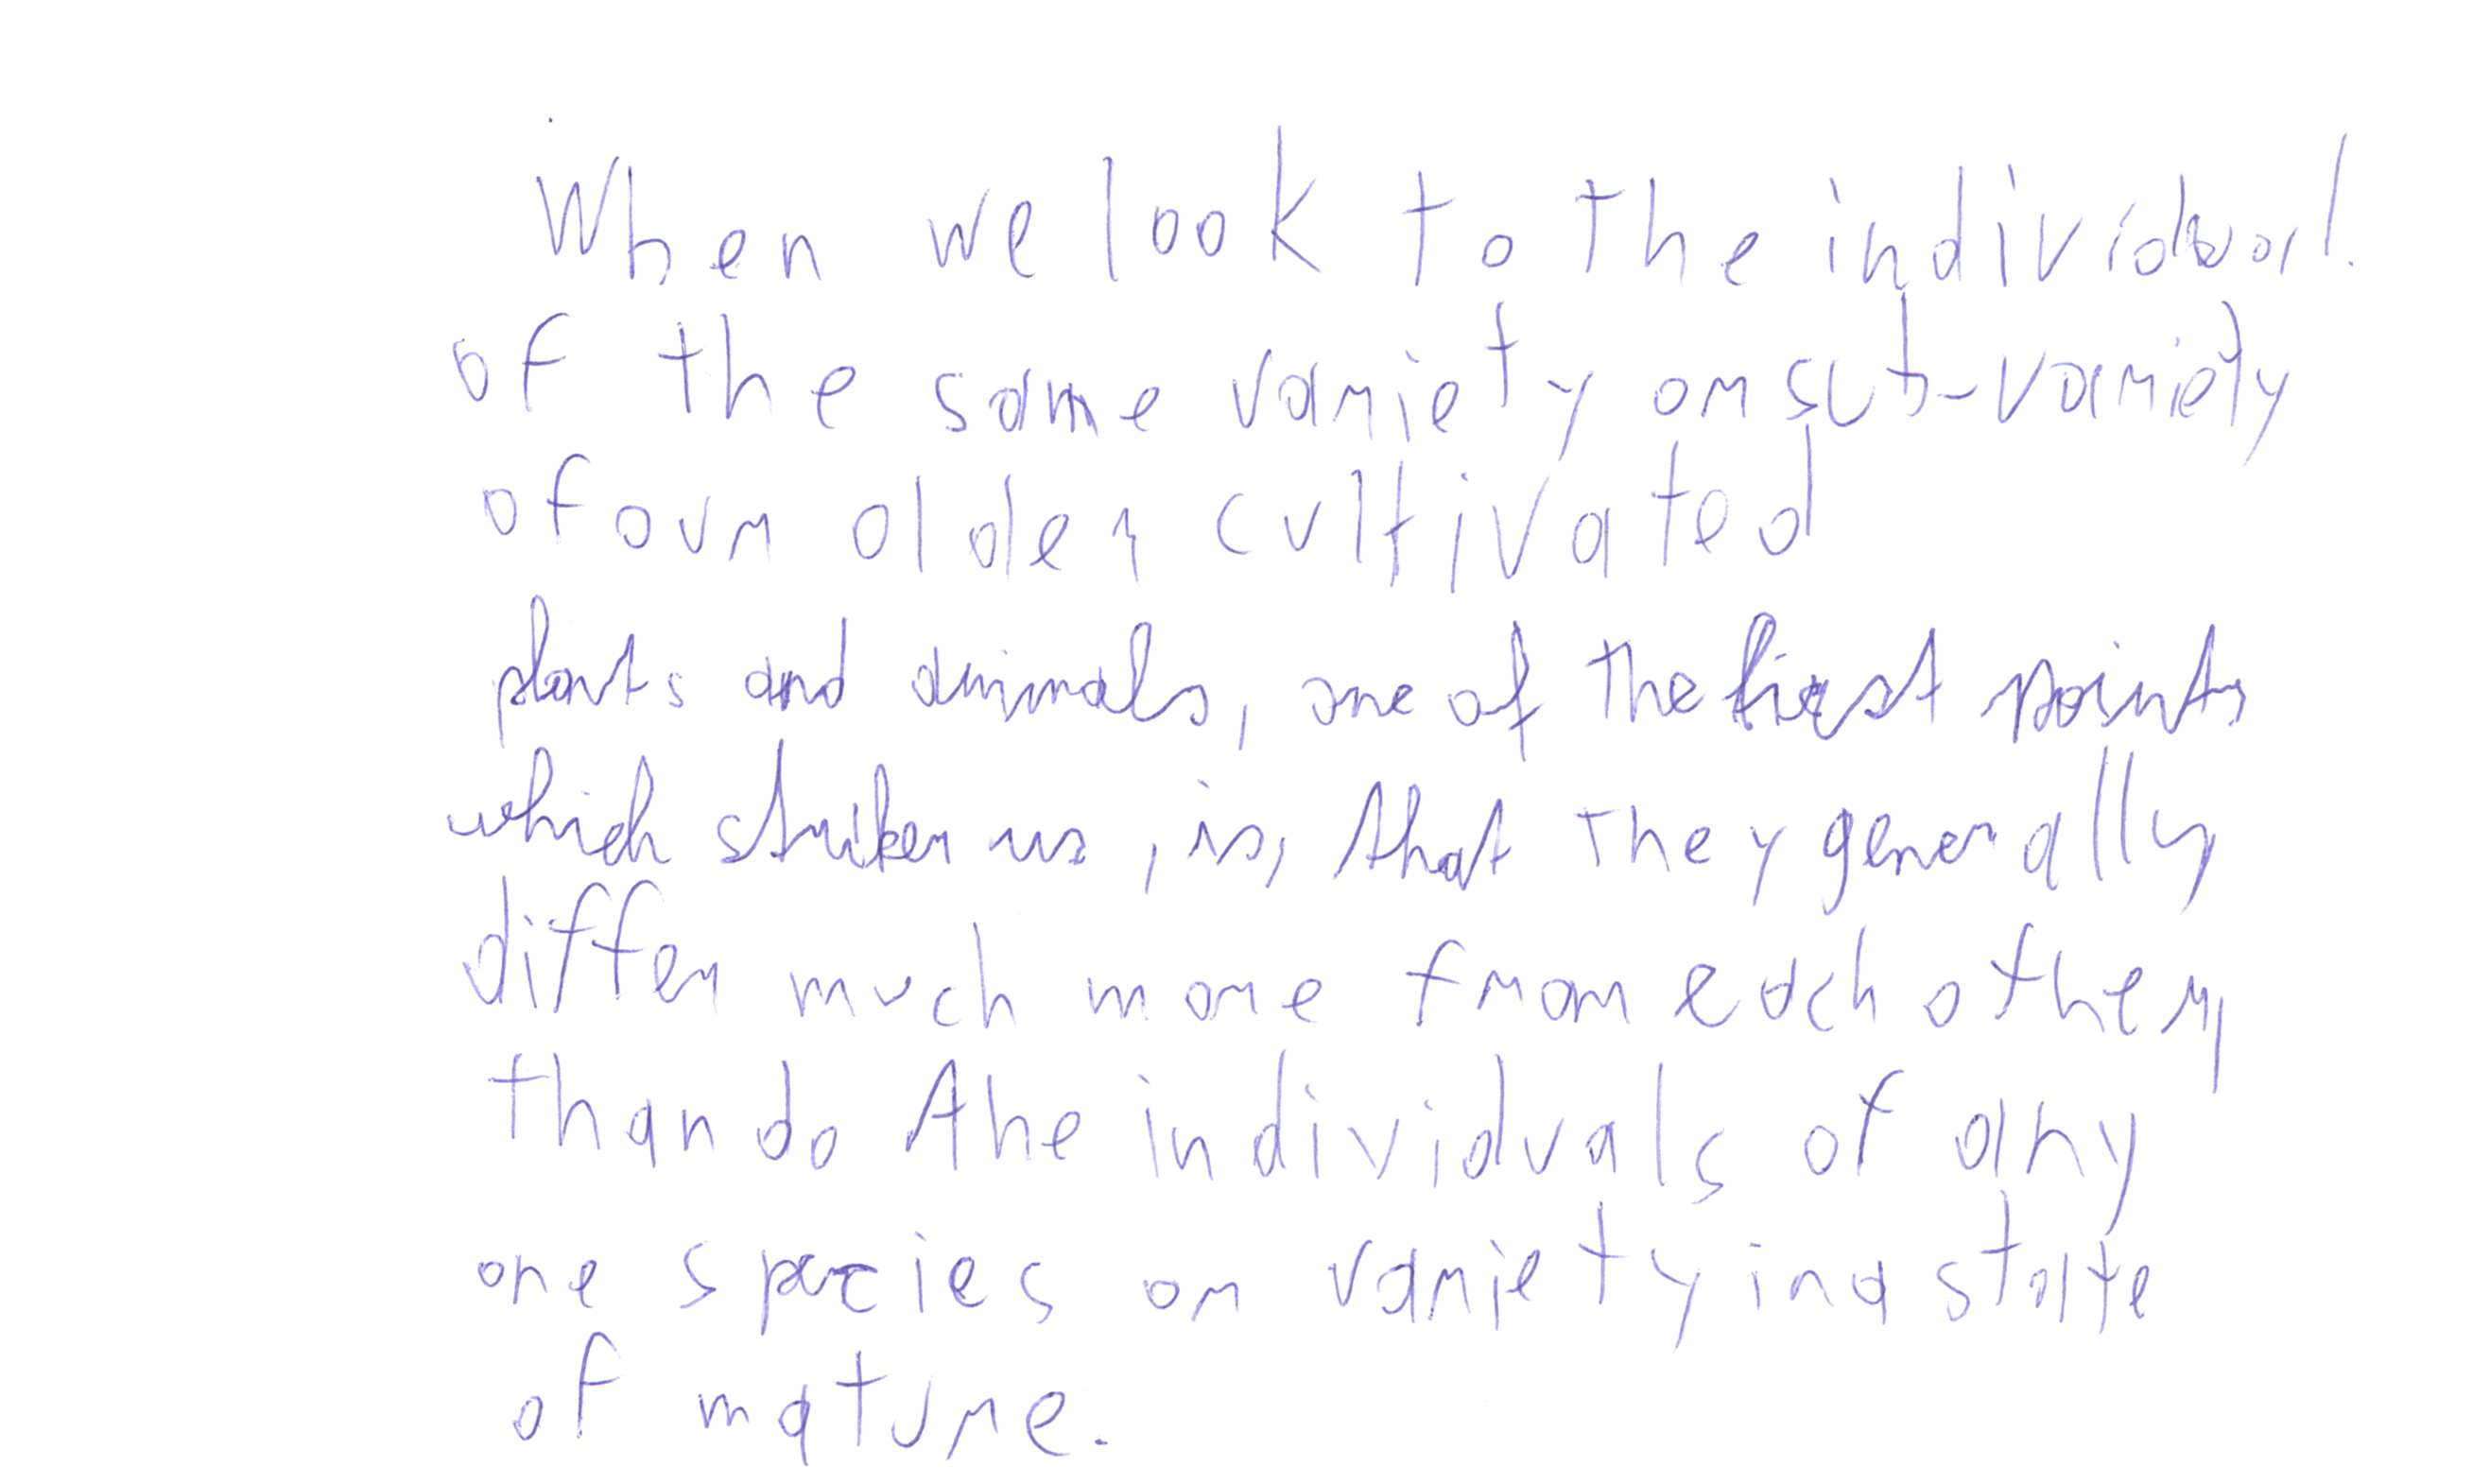 When we look to the individual.
of the same variety or sub-variety
of our older cultivated
plants and animals, one of the first points
which striker us, is, that they generally
differ much more from each other,
than do the individuals of any
one species or variety in a state
of nature.